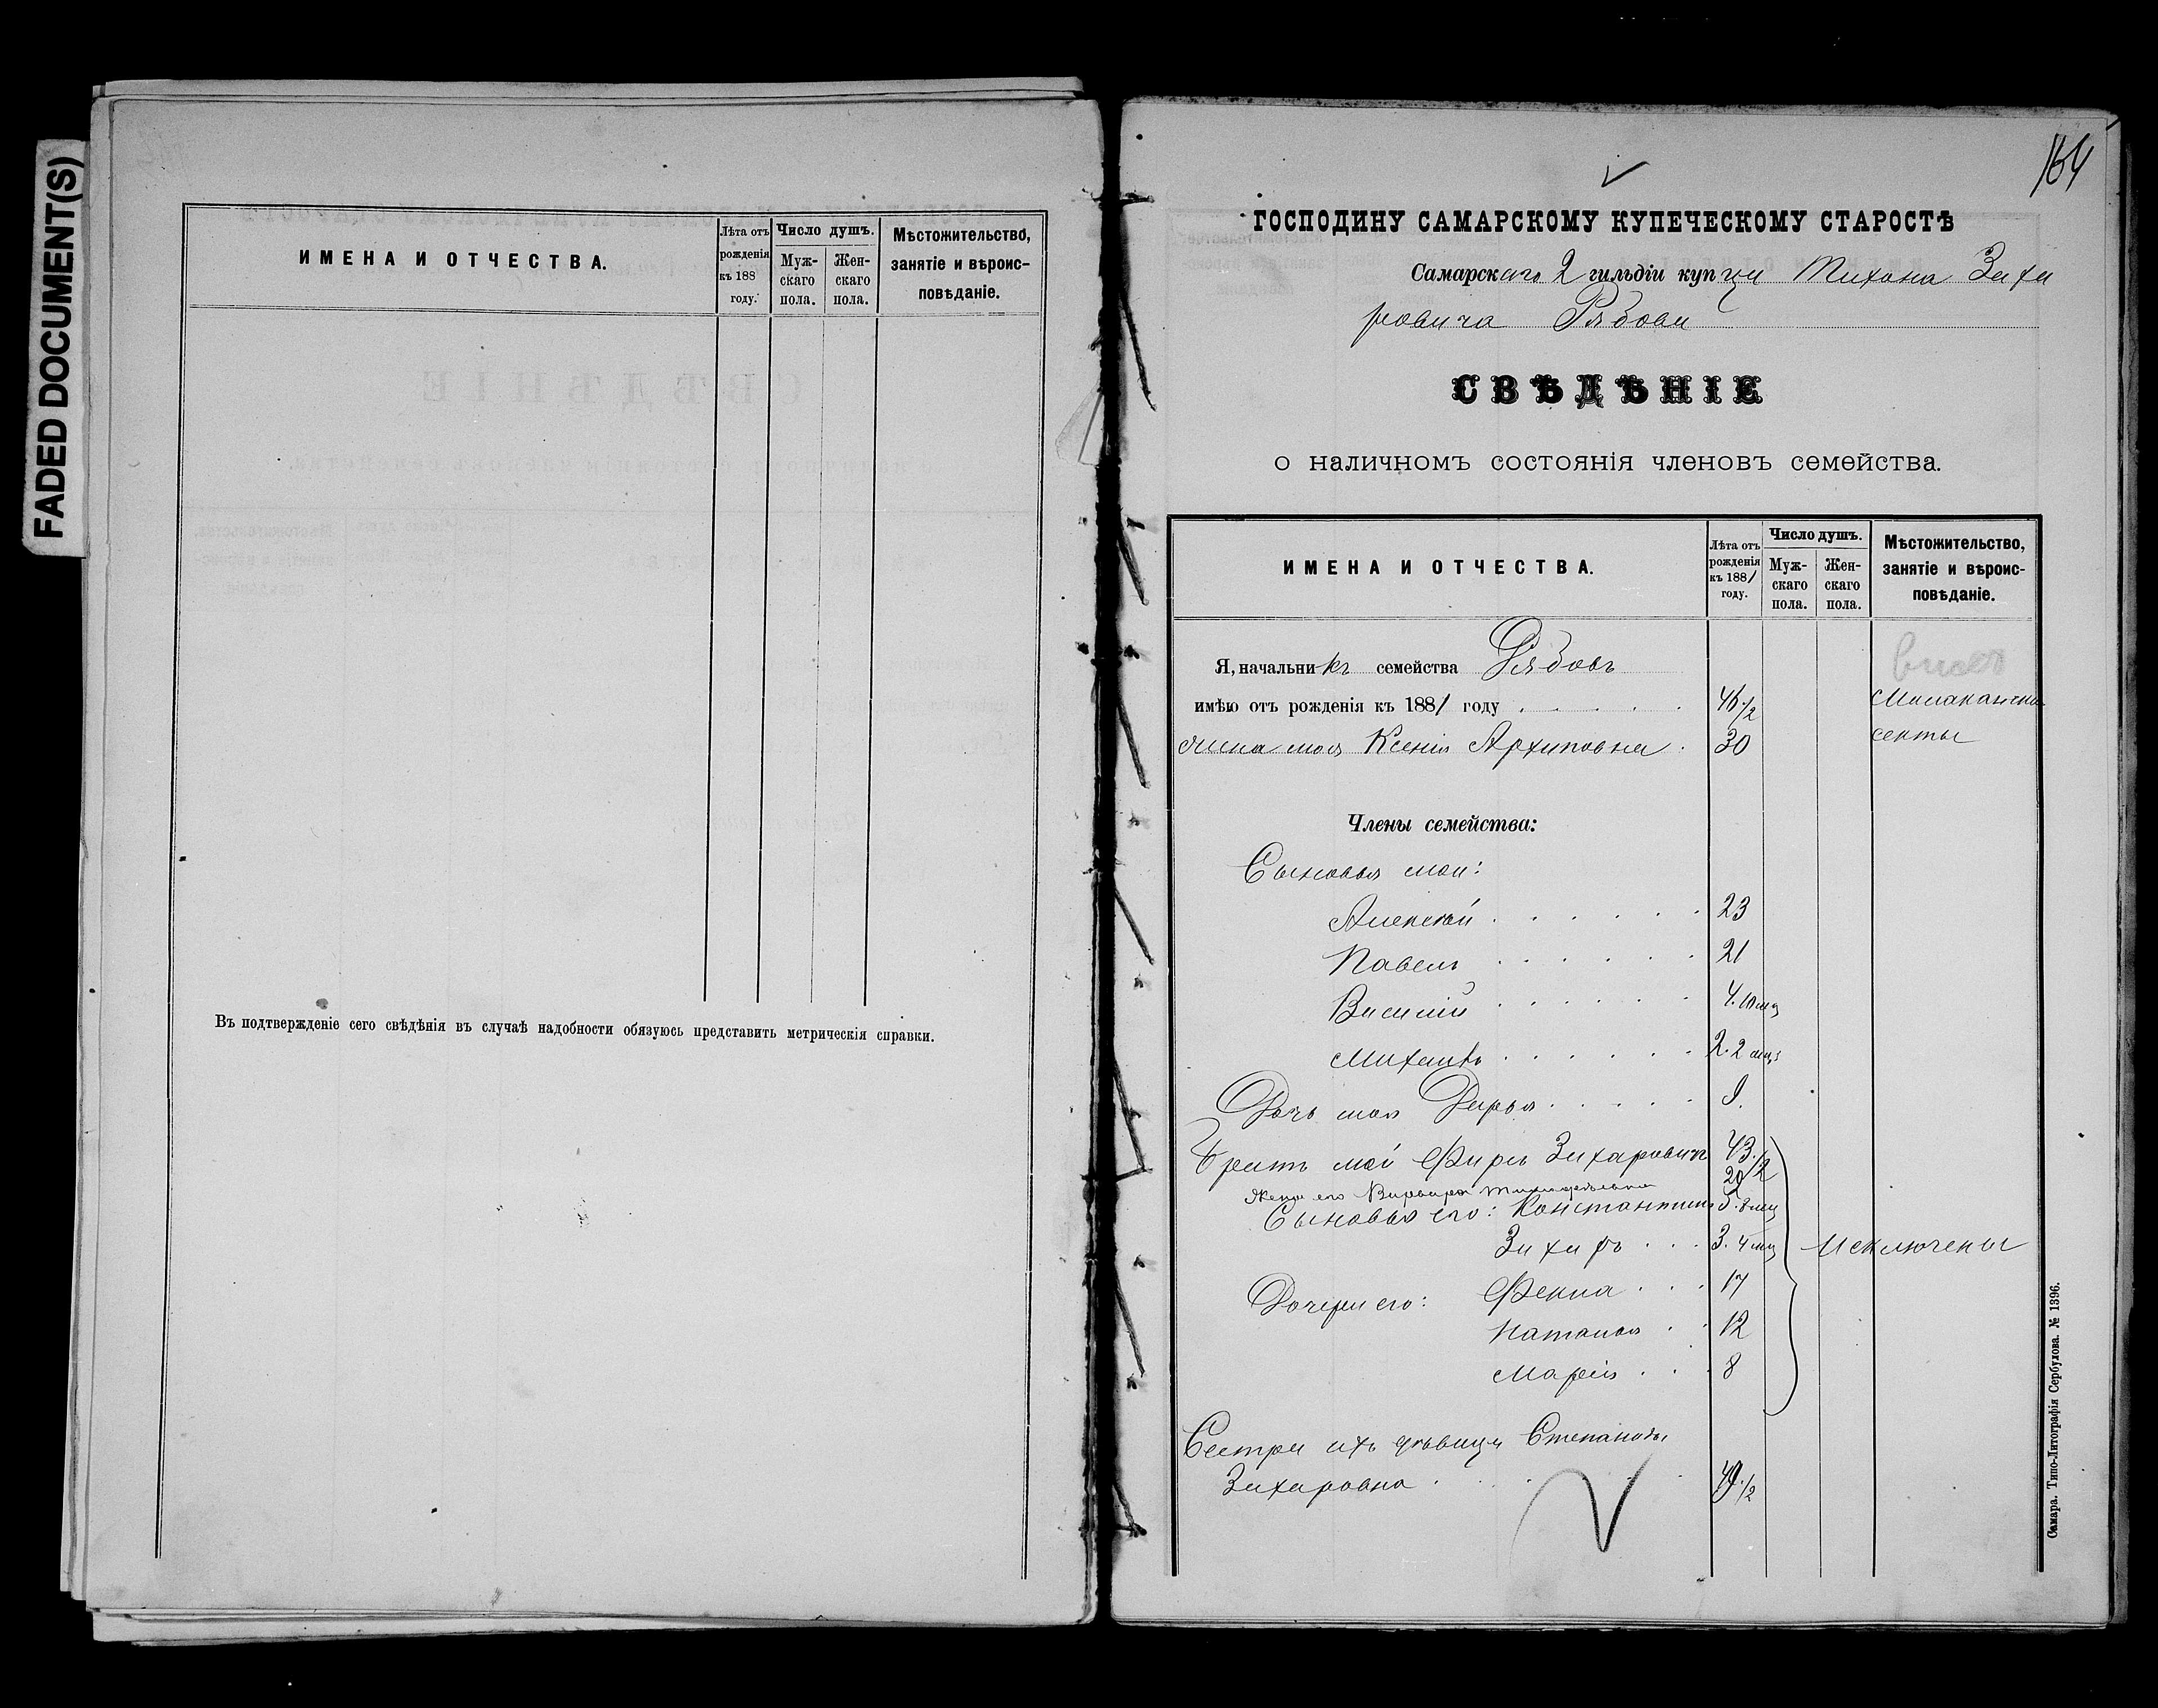 FADED DOCUMENT(S)
ИМЕНА И ОТЧЕСТВА.
Лѣта отъ рожденія къ 188 году.
Число душъ.
Мужскаго пола.
Женскаго пола.
Мѣстожительство, занятіе и вѣроисповѣданіе.
Въ подтвержденіе сего свѣдѣнія въ случаѣ надобности обязуюсь представить метрическія справки.
164
ГОСПОДИНУ САМАРСКОМУ КУПЕЧЕСКОМУ СТАРОСТѢ
Самарскаго 2 гильдіи купца Тихона Заха
ровича Рябова
СВѢДѢНІЕ
о наличномъ состоянія членовъ семейства.
ИМЕНА И ОТЧЕСТВА.
Лѣта отъ рожденія къ 1881 году.
Число душъ.
Мужскаго пола.
Женскаго пола.
Мѣстожительство, занятіе и вѣроисповѣданіе.
Я, начальникъ семейства Рябовъ
имѣю отъ рожденія къ 1881 году 46 1/2 Малаканской
жена моя Ксенія Архиповна 30 секты
Члены семейства:
Сыновья мои:
Алексѣй 23
Павелъ 21
Василій 4. 10 мец
Михаилъ 2. 2 мец
Дочь моя Дарья 9.
Братъ мой Фирсъ Захаровичъ 43. 1/2
Жена его Варвара 20
Сыновья его: Константинъ 5. 8 мец
Захаръ 3. 4 мец Исключены
Дочери его: Фекла 17
Наталья 12
Марія 8
Сестра ихъ дѣвица Степанида
Захаровна 49. 1/2
Самара. Типо-Литографія Сербулова. № 1396.